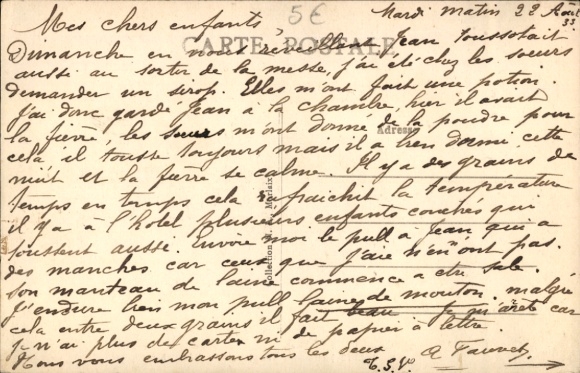 5€
Mardi matin 22 Août
33
Mes chers enfants
CARTE POSTALE
Dimanche en nous réveillant Jean toussotait
aussi au sortir de la messe, j'ai été chez les sœurs
demander un sirop. Elles m'ont fait une potion.
j'ai donc gardé Jean à la chambre, hier il avait
la fièvre, les sœurs m'ont donné de la poudre pour
Adresse
cela il tousse toujours mais il a bien dormi cette
nuit et la fièvre se calme. Il y a des grains de
temps en temps cela rafraichit la température
il y a à l'hôtel plusieurs enfants couchés qui
toussent aussi. Envoie moi le pull a Jean qui a
des manches car ceux que j'aie n'en ont pas.
son manteau de laine commence a etre sale.
j'endure bien mon pull laine de mouton, malgré
cela entre deux grains il fait beau. Je m'arête car
je n'ai plus de cartes ni de papier à lettre.
Nous vous embrassons tous les deux
T.S.V.
Collection Morlaix